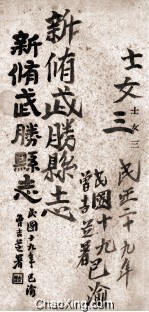 士女三
士女三
民國二十九年
民國十九
巴渝
曾吉芝署
新脩武勝縣志
新脩武勝縣志
民國十九年巴渝
曾吉芝署
ChaoXing.com